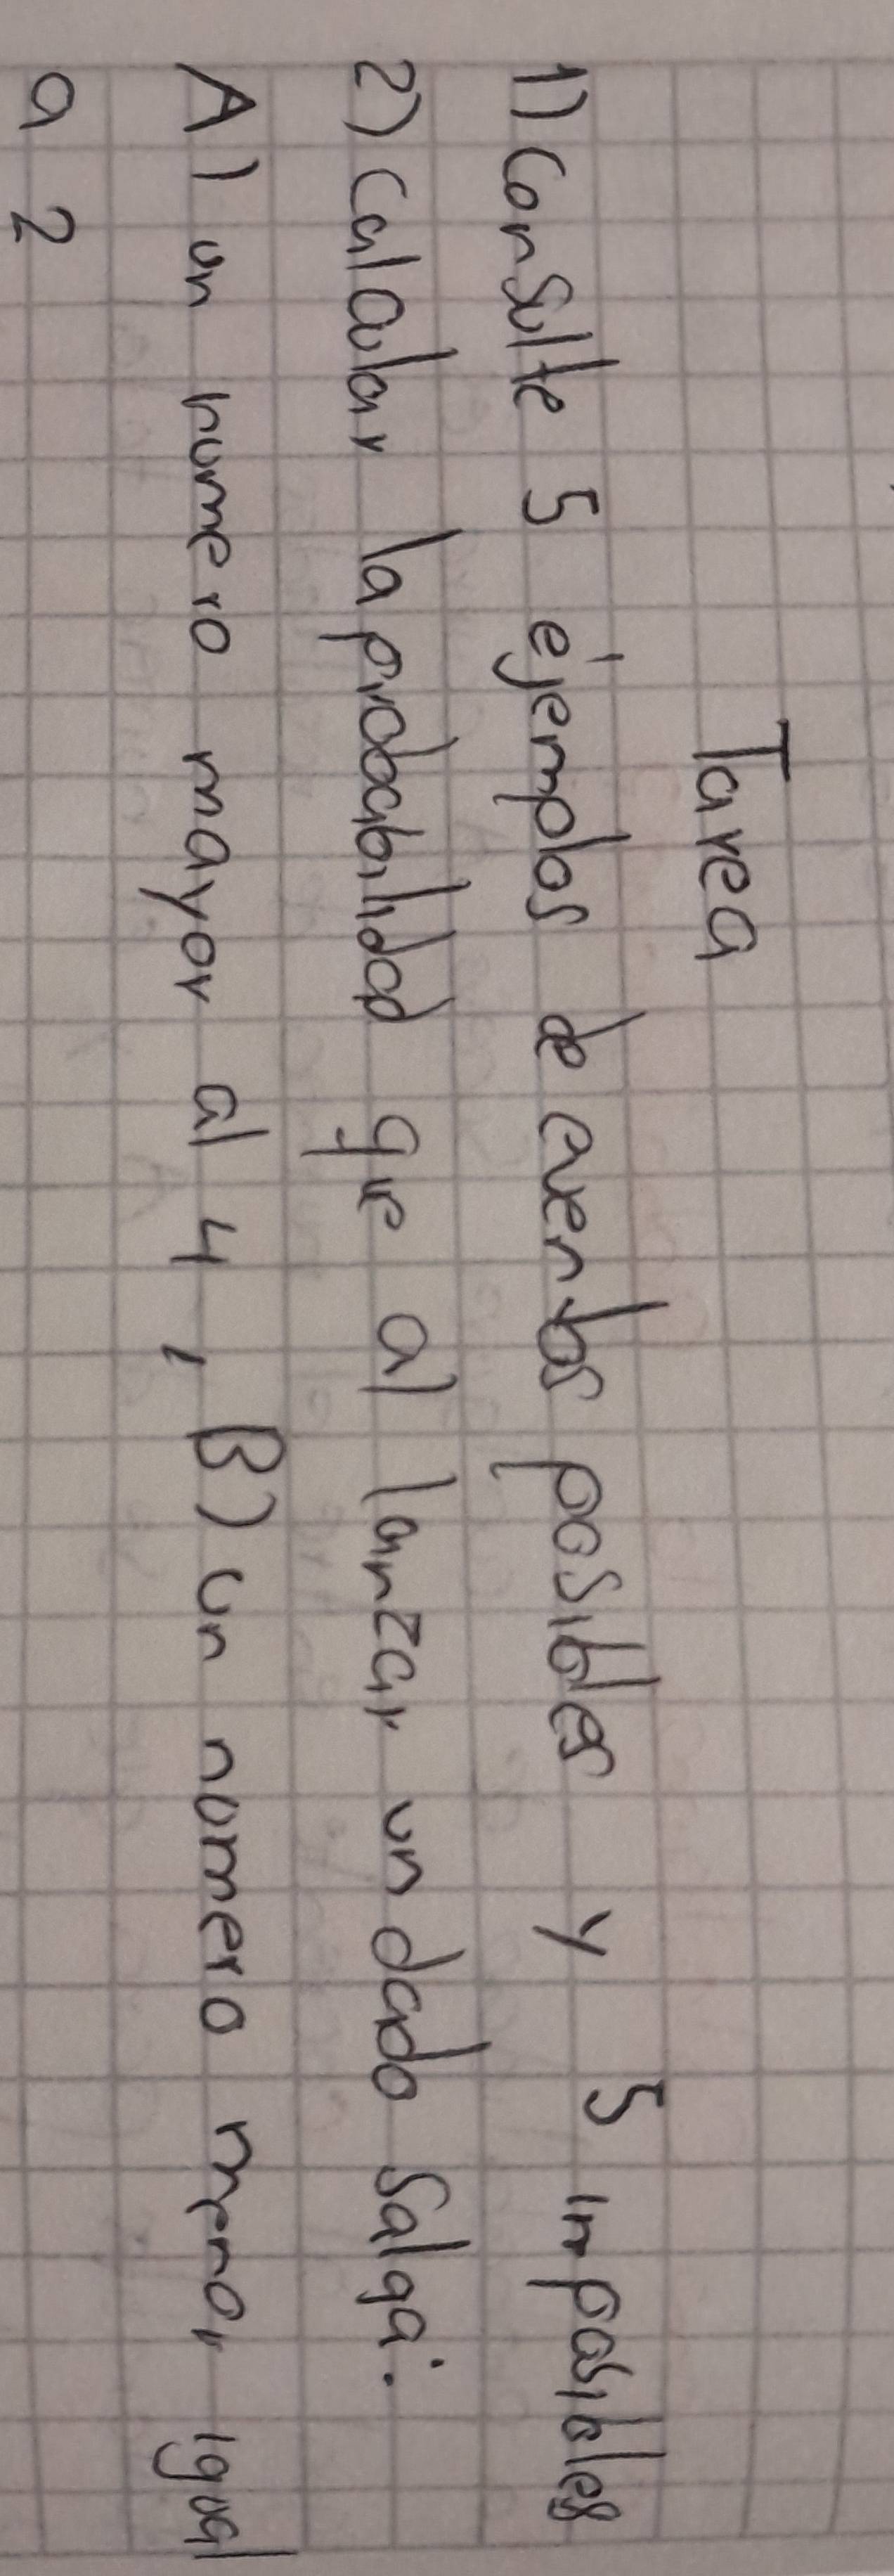 Tarea
1) Consulte 5 ejemplos de eventos posibles y 5 imposibles
2) Calcular la probabilidad que al lanzar un dado salga:
A) un numero mayor al 4, B) un numero menor igual
a 2